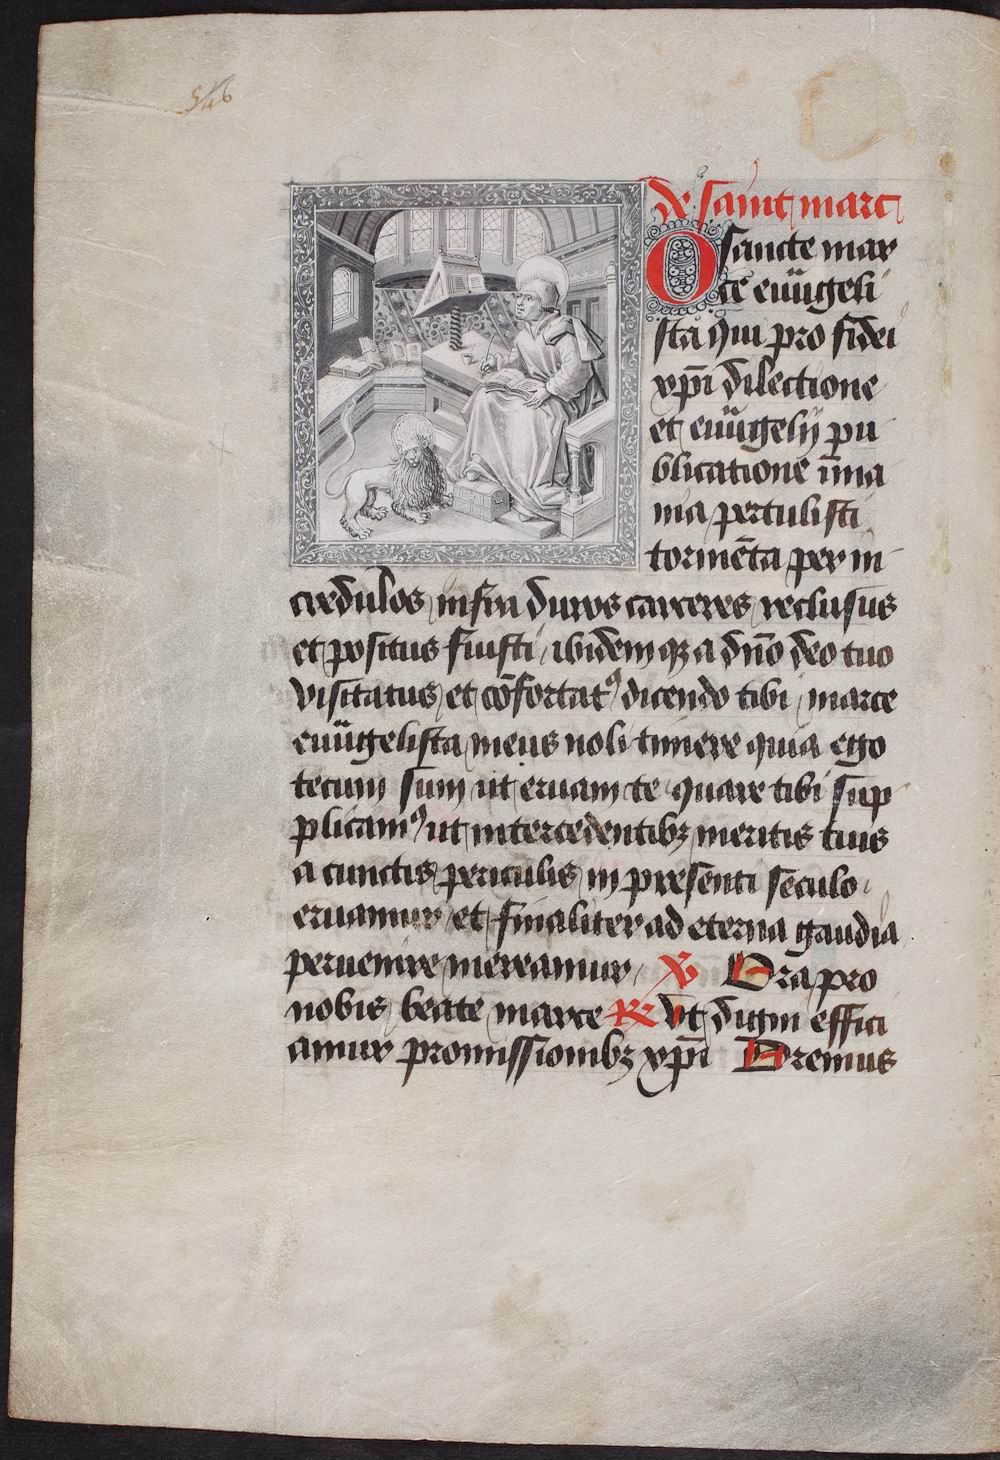 546
De saint marc
O sancte mar
ce euūgeli
sta qui pro fidei
xp̄i dilectione
et euūgelij pu
blicatione īma
nia pertulisti
tormēta per in
credulos insup duros carceres reclusus
et positus fuisti ibidemqȝ a dn̄o deo tuo
visitatus et cōfortatꝰ dicendo tibi marce
euūgelista meus noli timere quia ego
tecum sum ut eruam te quare tibi sup
plicamꝰ ut intercedentibȝ meritis tuis
a cunctis periculis in presenti seculo
eruamur et finaliter ad eterna gaudia
peruenire mereamur ℣ Ora pro
nobis beate marce ℟ vt digni effici
amur promissionibȝ xp̄i Oremus